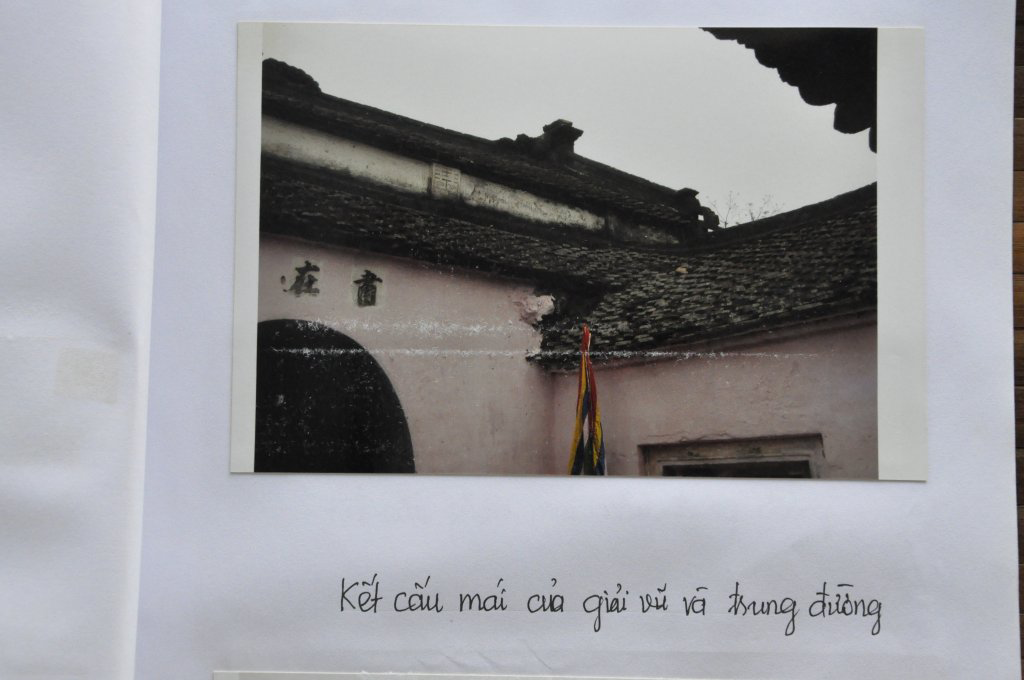 在
Kết cấu mái của giải vũ và trung đường